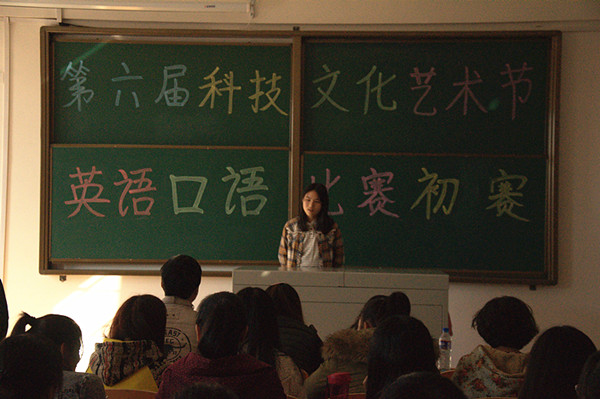 第六届科技文化艺术节
英语口语比赛初赛